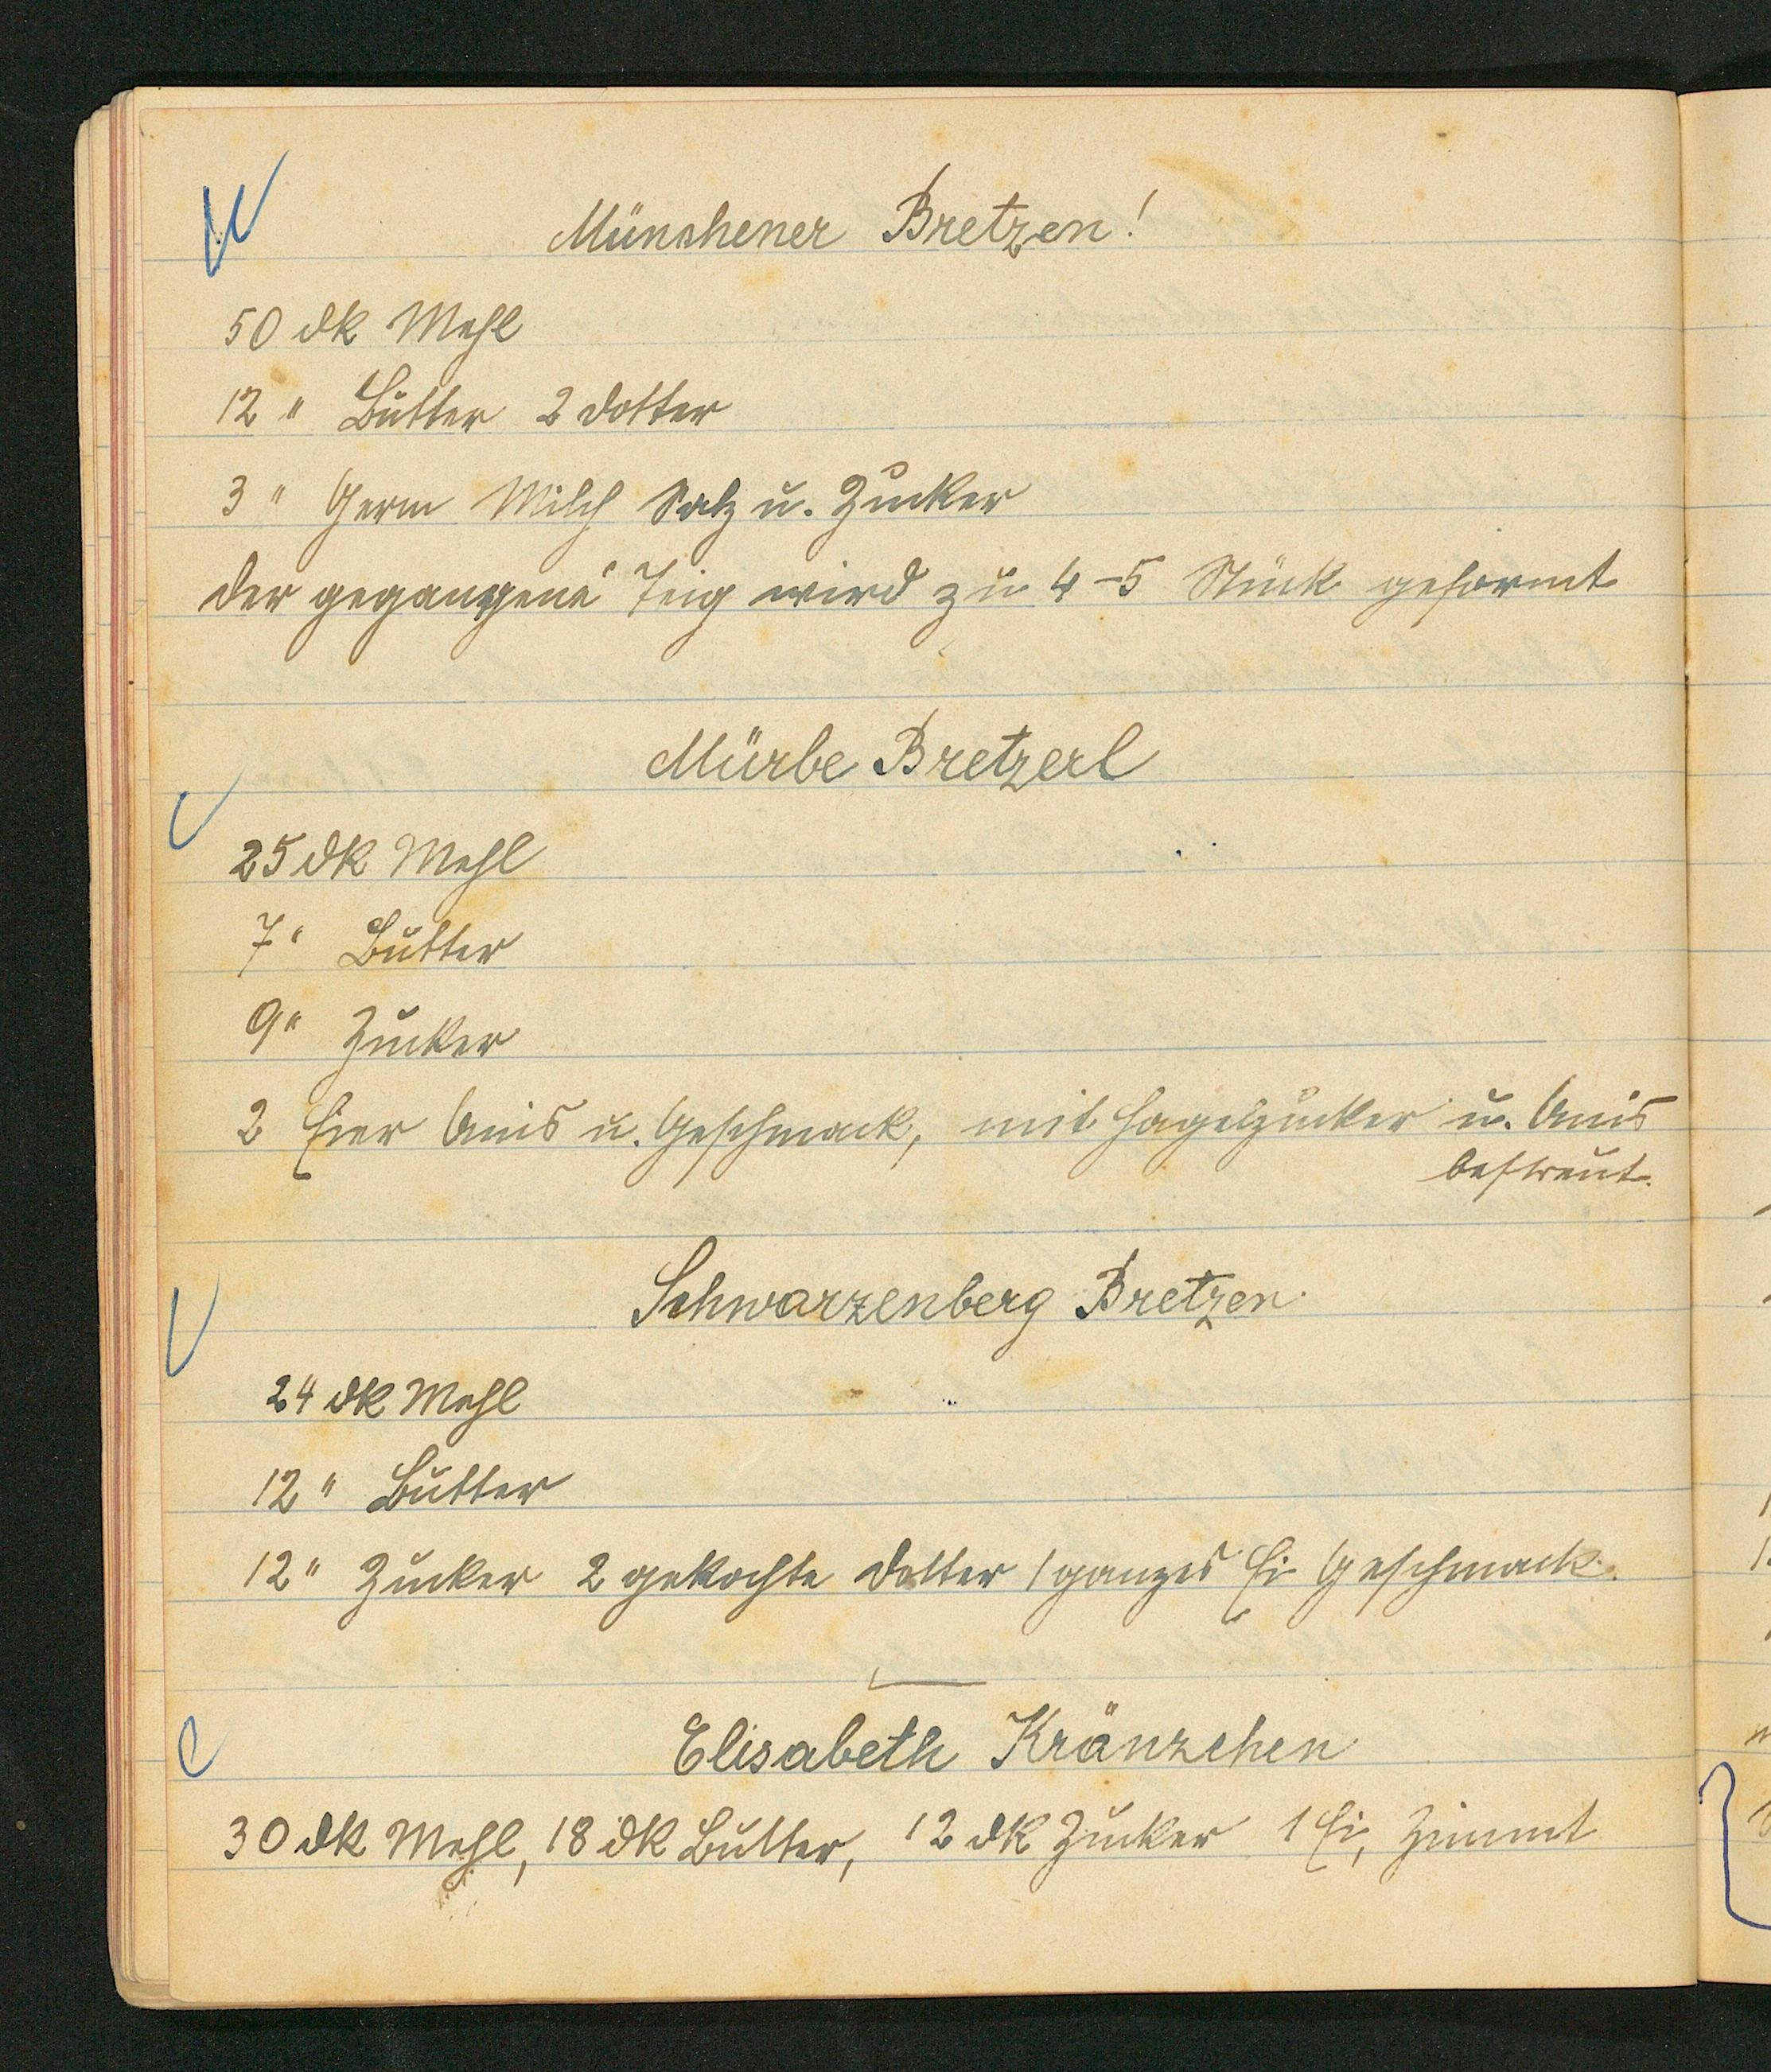 Münchener Bretzen!
50 dk Mehl
12 " Butter 2 Dotter
3 " Germ Milch Salz u. Zucker
der gegangene Teig wird zu 4-5 Stück geformt
Mürbe Bretzerl
25 dk Mehl
7 " Butter
9 " Zucker
2 Eier Anis u. Geschmack, mit Hagelzucker u. Anis
bestreut.
Schwarzenberg Bretzen
24 dk Mehl
12 " Butter
12 " Zucker 2 gekochte Dotter 1 ganzes Ei Geschmack.
Elisabeth Kränzchen
30 dk Mehl, 18 dk Butter, 12 dk Zucker 1 Ei, Zimmt